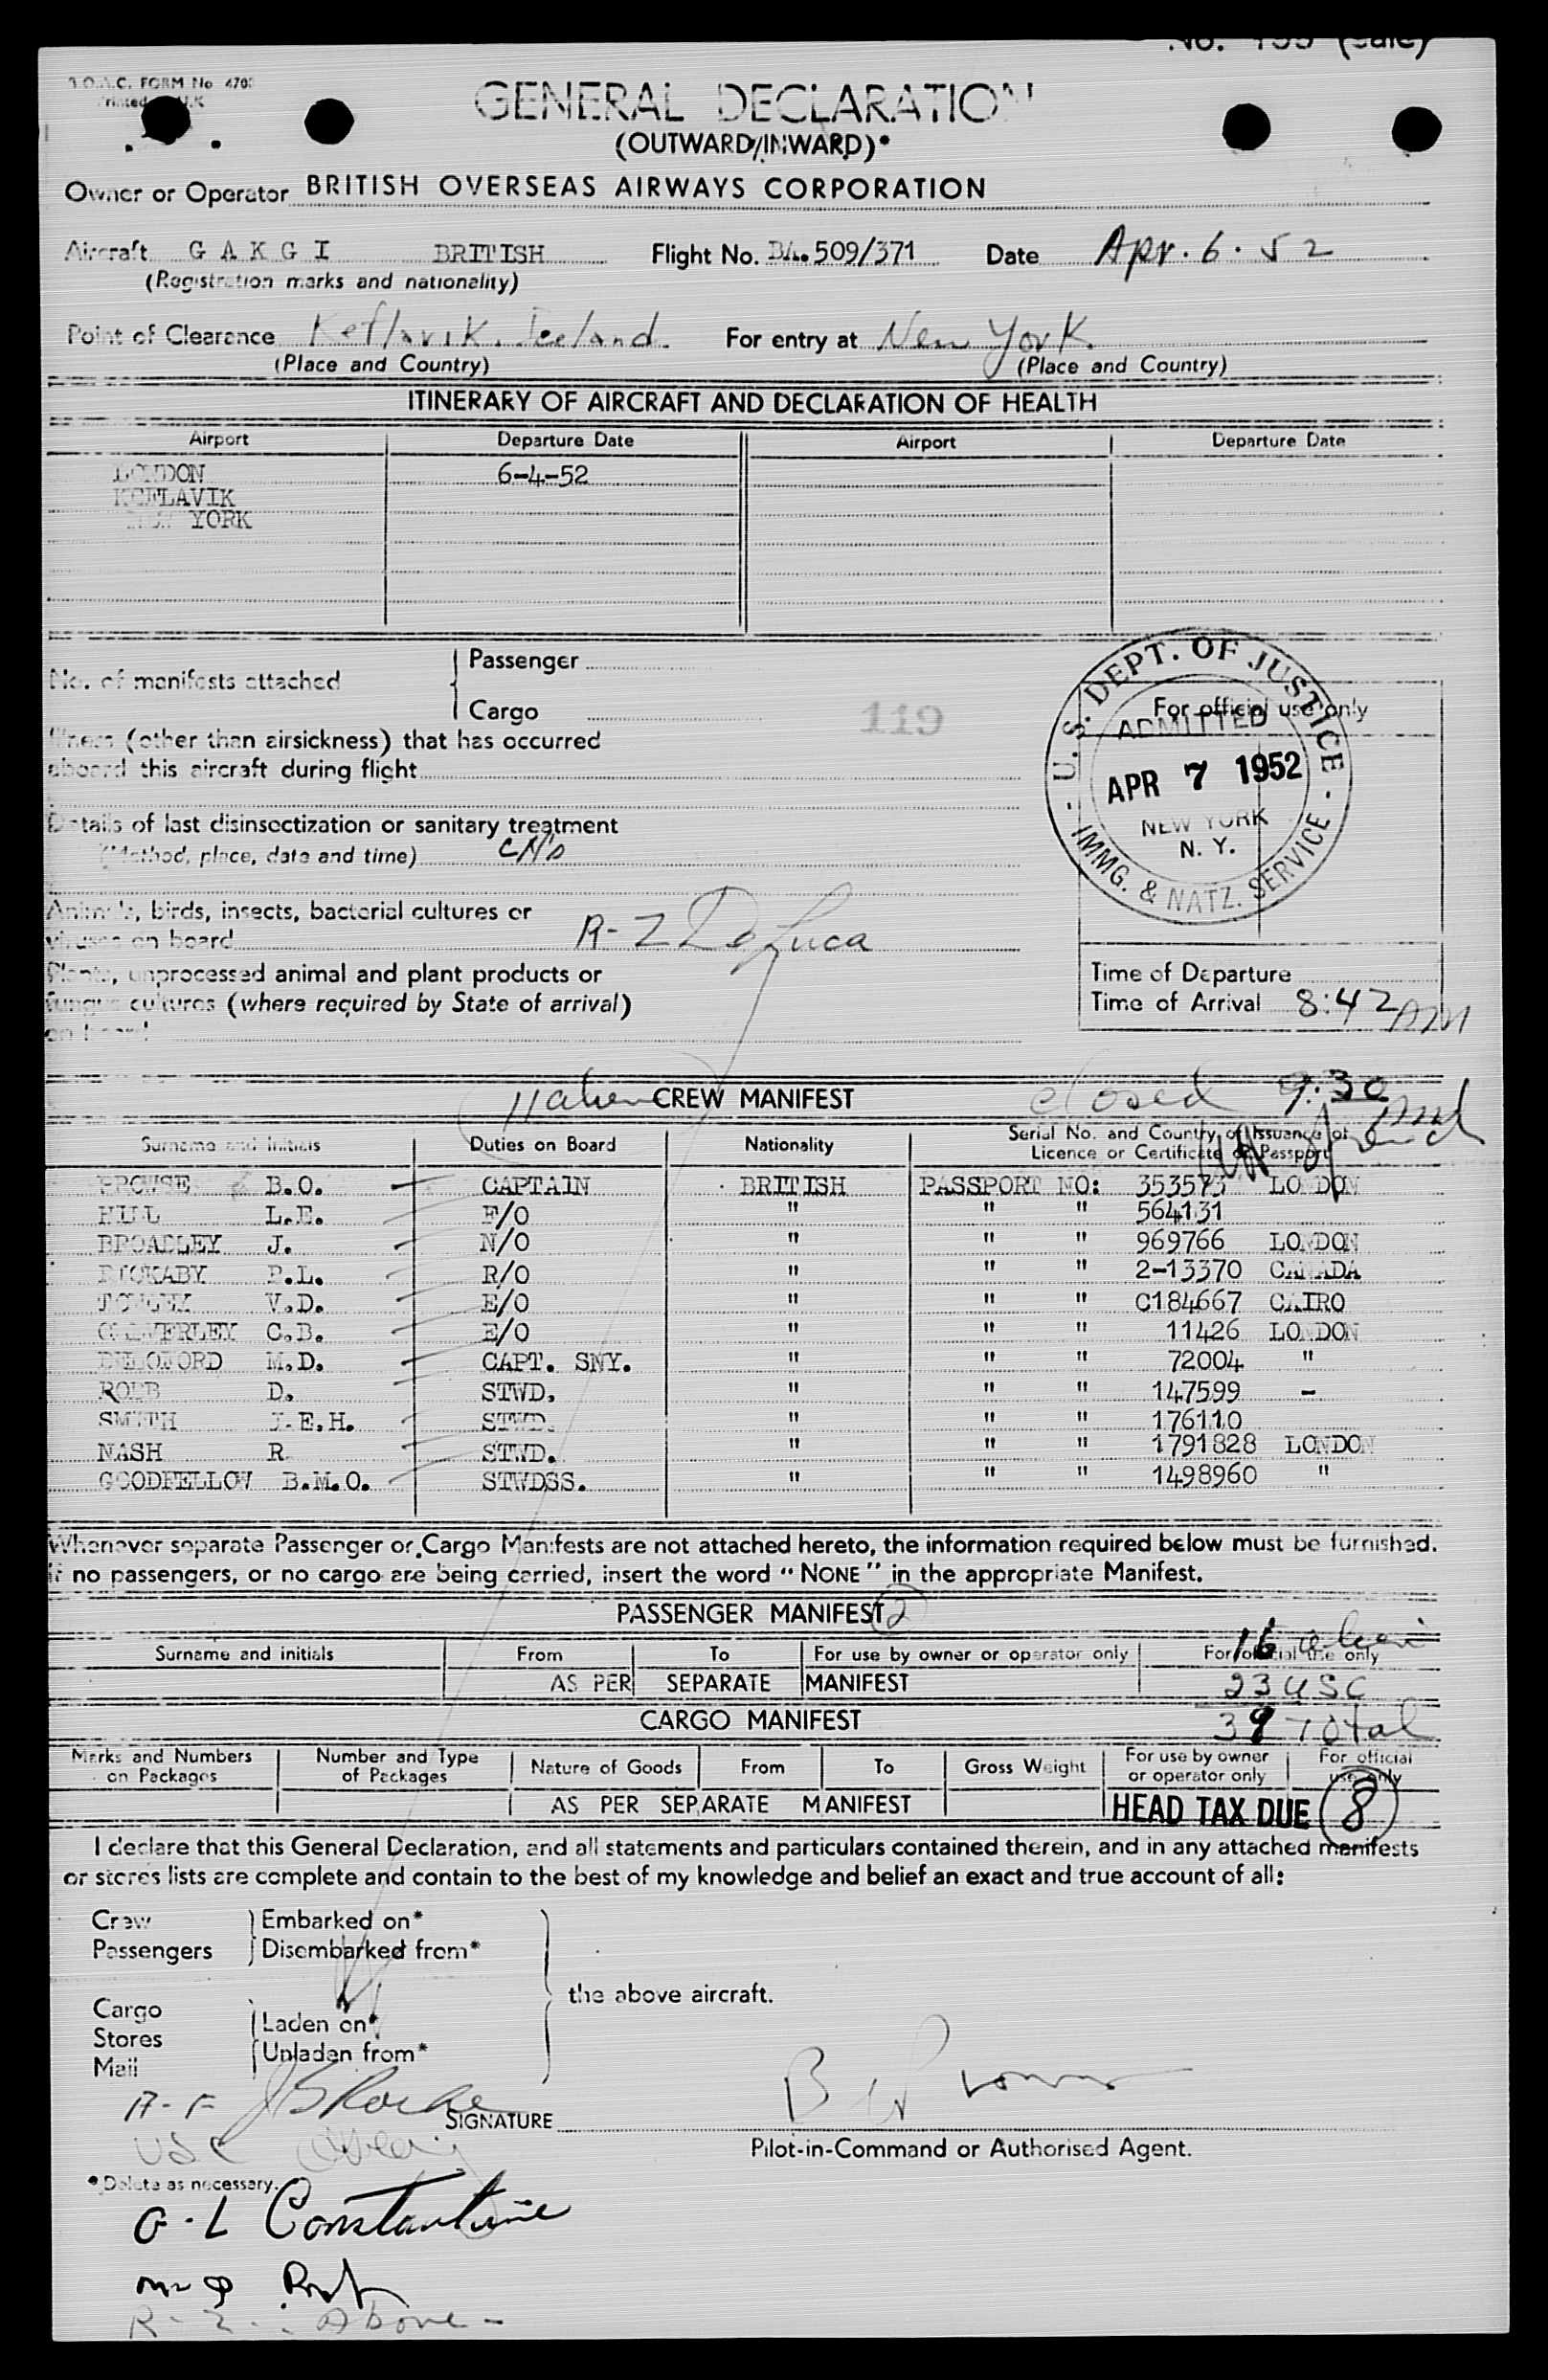 B.O.A.C. FORM No 470
Printed U.K
GENERAL DECLARATION
(OUTWARD/INWARD)*
Owner or Operator BRITISH OVERSEAS AIRWAYS CORPORATION
Aircraft G A K G I BRITISH Flight No. BA.509/371 Date Apr. 6. 52
(Registration marks and nationality)
Point of Clearance Keflavik. Iceland. For entry at New York
(Place and Country) (Place and Country)
ITINERARY OF AIRCRAFT AND DECLARATION OF HEALTH
Airport Departure Date Airport Departure Date
LONDON 6-4-52
KEFLAVIK
NEW YORK
No. of manifests attached
Passenger
Cargo
119
For official use only
U.S. DEPT. OF JUSTICE - IMMG. & NATZ. SERVICE -
ADMITTED
APR 7 1952
NEW YORK
N. Y.
Illness (other than airsickness) that has occurred
aboard this aircraft during flight
Details of last disinsectization or sanitary treatment
(Method, place, date and time)
Animals, birds, insects, bacterial cultures or
viruses on board R-2 DeLuca
Plants, unprocessed animal and plant products or
fungus cultures (where required by State of arrival)
on board
Time of Departure
Time of Arrival 8:42 AM
11 alien CREW MANIFEST closed 9:30
Surname and Initials Duties on Board Nationality Serial No. and Country of Issuance of
Licence or Certificate or Passport
PROWSE B.O. CAPTAIN BRITISH PASSPORT NO: 353573 LONDON
HILL L.E. F/O " " " 564131
BROADLEY J. N/O " " " 969766 LONDON
P.L. R/O " " " 2-13370 CANADA
V.D. E/O " " " C184667 CAIRO
C.B. E/O " " " 11426 LONDON
M.D. CAPT. SNY. " " " 72004 "
ROBB D. STWD. " " " 147599 -
SMITH E.H. STWD. " " " 176110
NASH R STWD. " " " 1791828 LONDON
GOODFELLOW B.M.O. STWDSS. " " " 1498960 "
Whenever separate Passenger or Cargo Manifests are not attached hereto, the information required below must be furnished.
If no passengers, or no cargo are being carried, insert the word "NONE" in the appropriate Manifest.
PASSENGER MANIFEST 2
16 alien
Surname and initials From To For use by owner or operator only For official use only
AS PER SEPARATE MANIFEST 23 USC
CARGO MANIFEST 39 Total
Marks and Numbers on Packages Number and Type of Packages Nature of Goods From To Gross Weight For use by owner or operator only For official use only
AS PER SEPARATE MANIFEST HEAD TAX DUE 8
I declare that this General Declaration, and all statements and particulars contained therein, and in any attached manifests
or stores lists are complete and contain to the best of my knowledge and belief an exact and true account of all:
Crew Embarked on*
Passengers Disembarked from*
the above aircraft.
Cargo
Stores Laden on*
Mail Unladen from*
SIGNATURE
Pilot-in-Command or Authorised Agent.
USC
*Delete as necessary.
G. L Constantine
R-2 - Above -